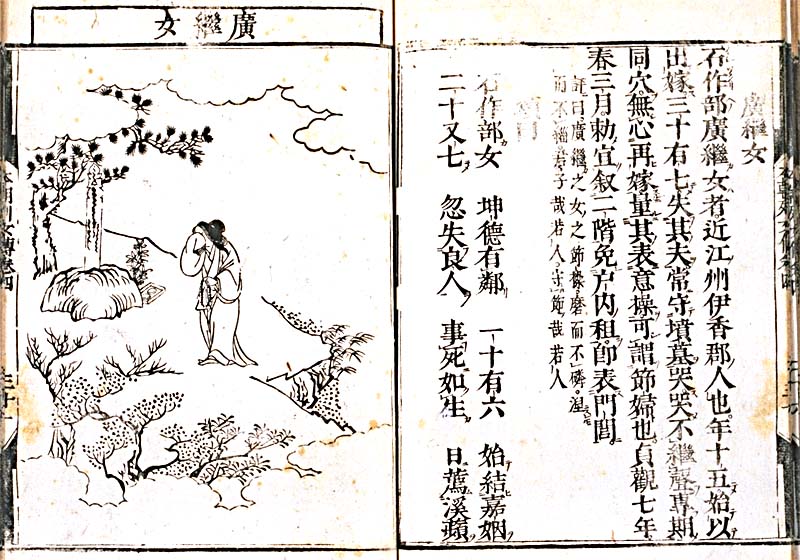 廣繼女
石作部廣繼女者近江州伊香郡人也年十五始以
出嫁三十有七失其夫常守墳墓哭哭不繼聲專期
同穴無心再嫁量其表意操可謂節婦也貞觀七年
春三月勅宣叙二階免戸内租即表門閭
曰廣繼之女之節操磨而不磷涅
而不緇君子哉若人守節哉若人
石作部女 坤德有鄰 一十有六 始結嘉姻
二十又七 忽失良人 事死如生 日薦溪蘋
廣繼女